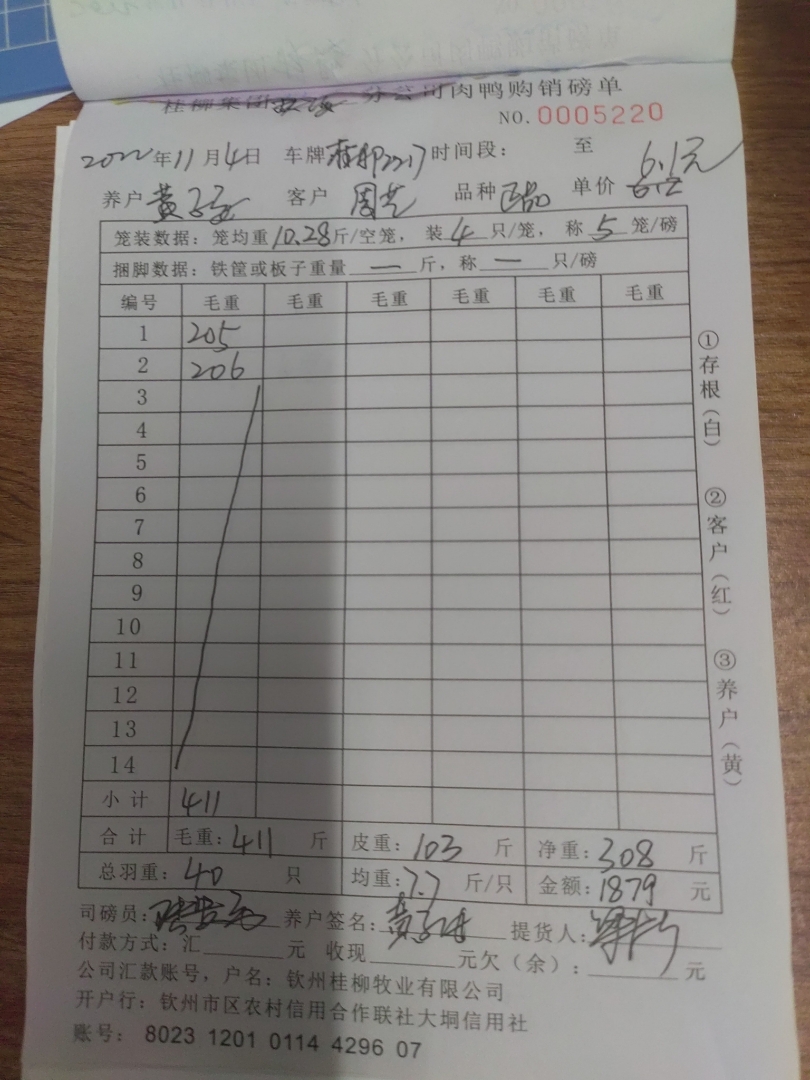 桂柳集团 分公司肉鸭购销磅单
NO.0005220
2022年11月4日 车牌 时间段： 至
养户 黄 客户 周 品种 单价 6.1元
笼装数据：笼均重10.28斤/空笼，装4只/笼，称5笼/磅
捆脚数据：铁筐或板子重量—斤，称—只/磅
编号 毛重 毛重 毛重 毛重 毛重 毛重
1 205
2 206
3
4
5
6
7
8
9
10
11
12
13
14
小计 411
合计 毛重：411斤 皮重：103斤 净重：308斤
总羽重：40只 均重：7.7斤/只 金额：1879元
司磅员： 养户签名：黄 提货人：
付款方式：汇 元 收现 元欠（余）： 元
公司汇款账号，户名：钦州桂柳牧业有限公司
开户行：钦州市区农村信用合作联社大垌信用社
账号：8023 1201 0114 4296 07
①存根（白）
②客户（红）
③养户（黄）